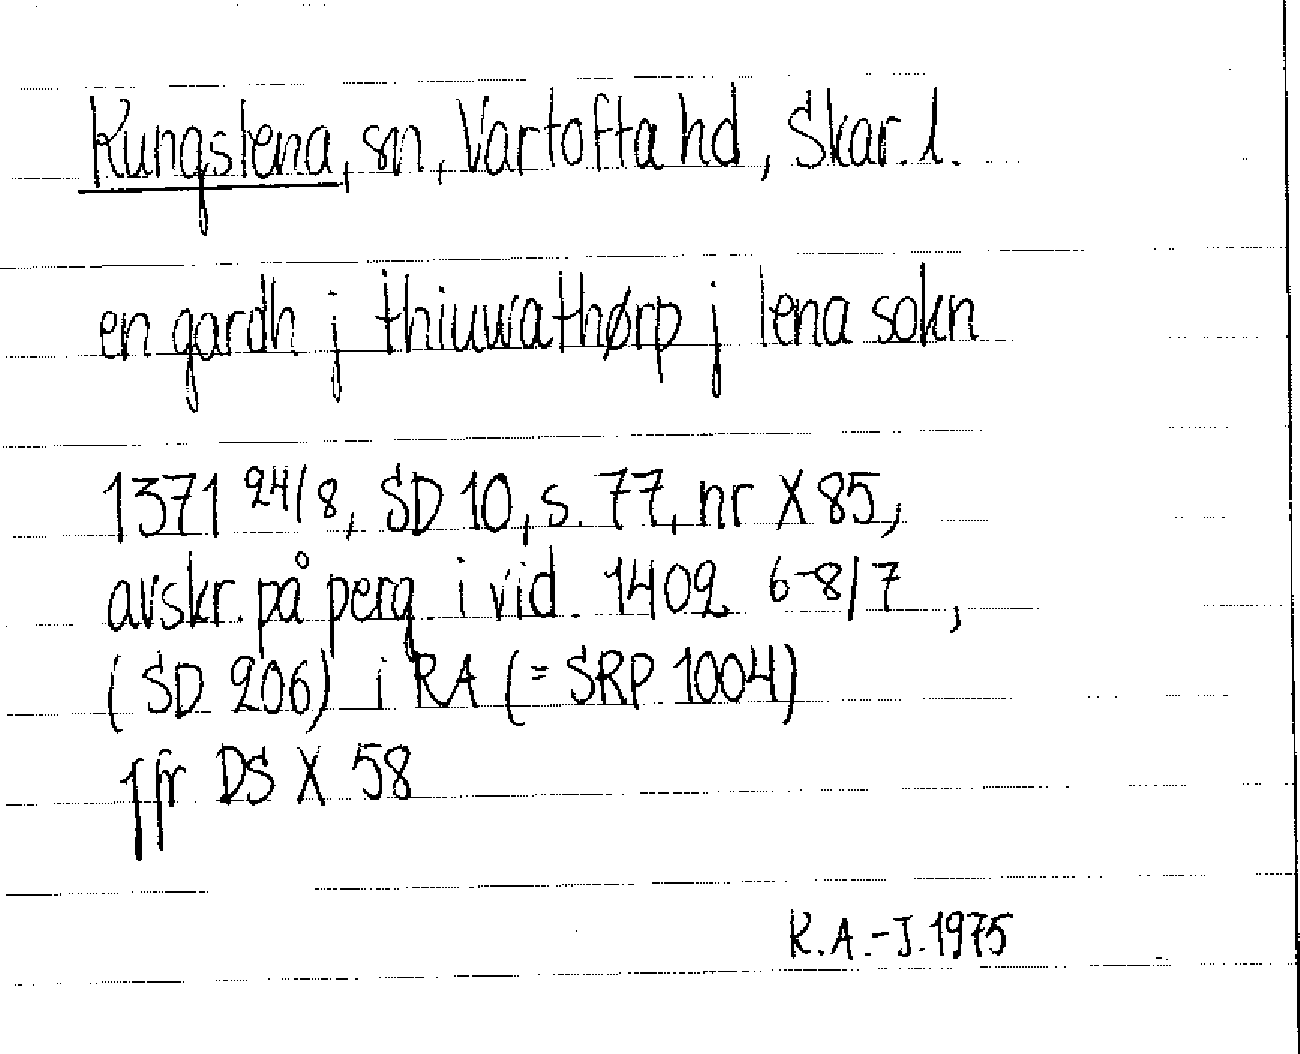 Kungslena, sn, Vartofta hd, Skar. l.
en gardh j thiuwathørp j lena sokn
1371 24/8, SD 10, s. 77, nr X 85,
avskr. på perg. i vid. 1402 6-8/7,
(SD 206) i RA (= SRP 1004)
jfr DS X 58
R.A.-J. 1975